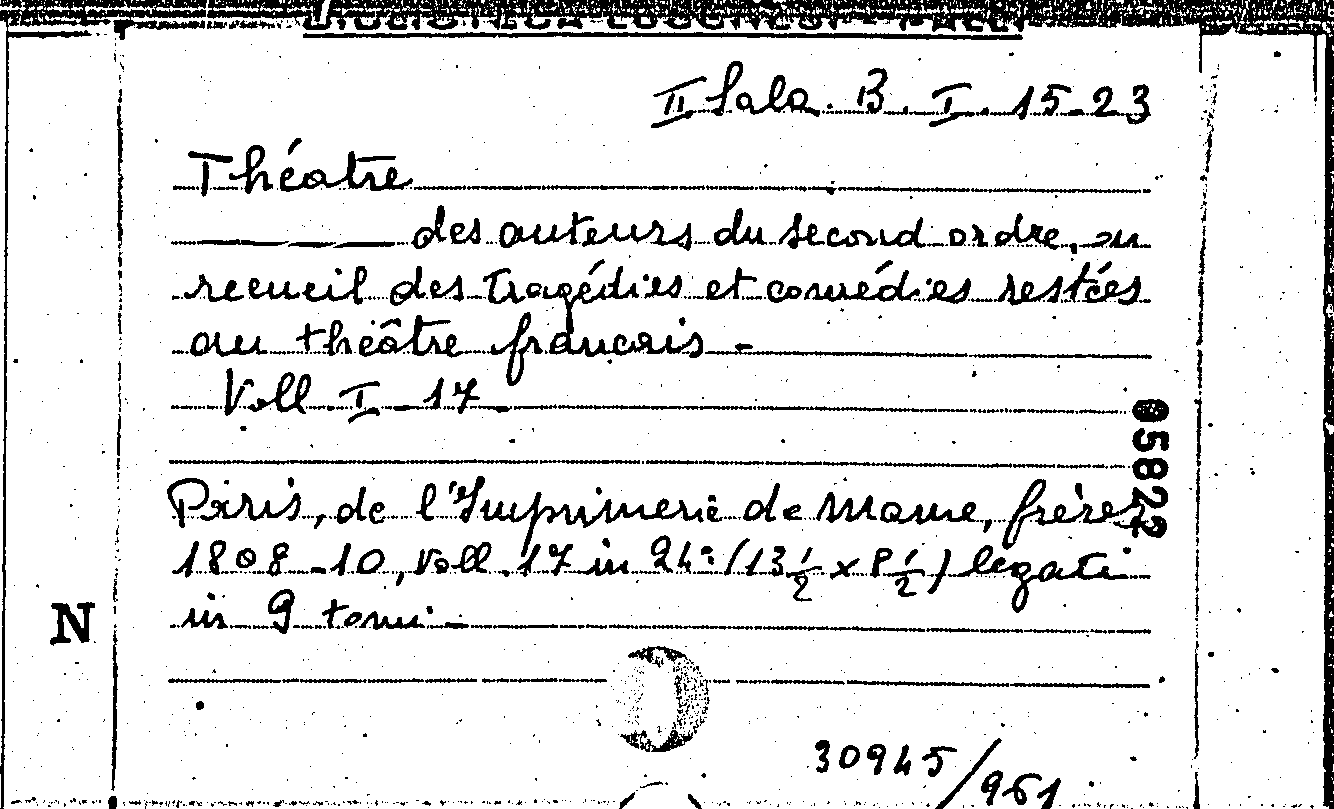 BIBLIOTECA LUCCHESI - PALLI
II Sala. B. I. 15-23
Théatre
———— des auteurs du second ordre, ou
recueil des tragédies et comédies restées
au théâtre francais -
Voll. I - 17 -
05822
Paris, de l'Imprimerie de Mame, frères
1808-10, Voll. 17 in 24º (13 1/2 x 8 1/2) legati
in 9 tomi -
N
30945/961